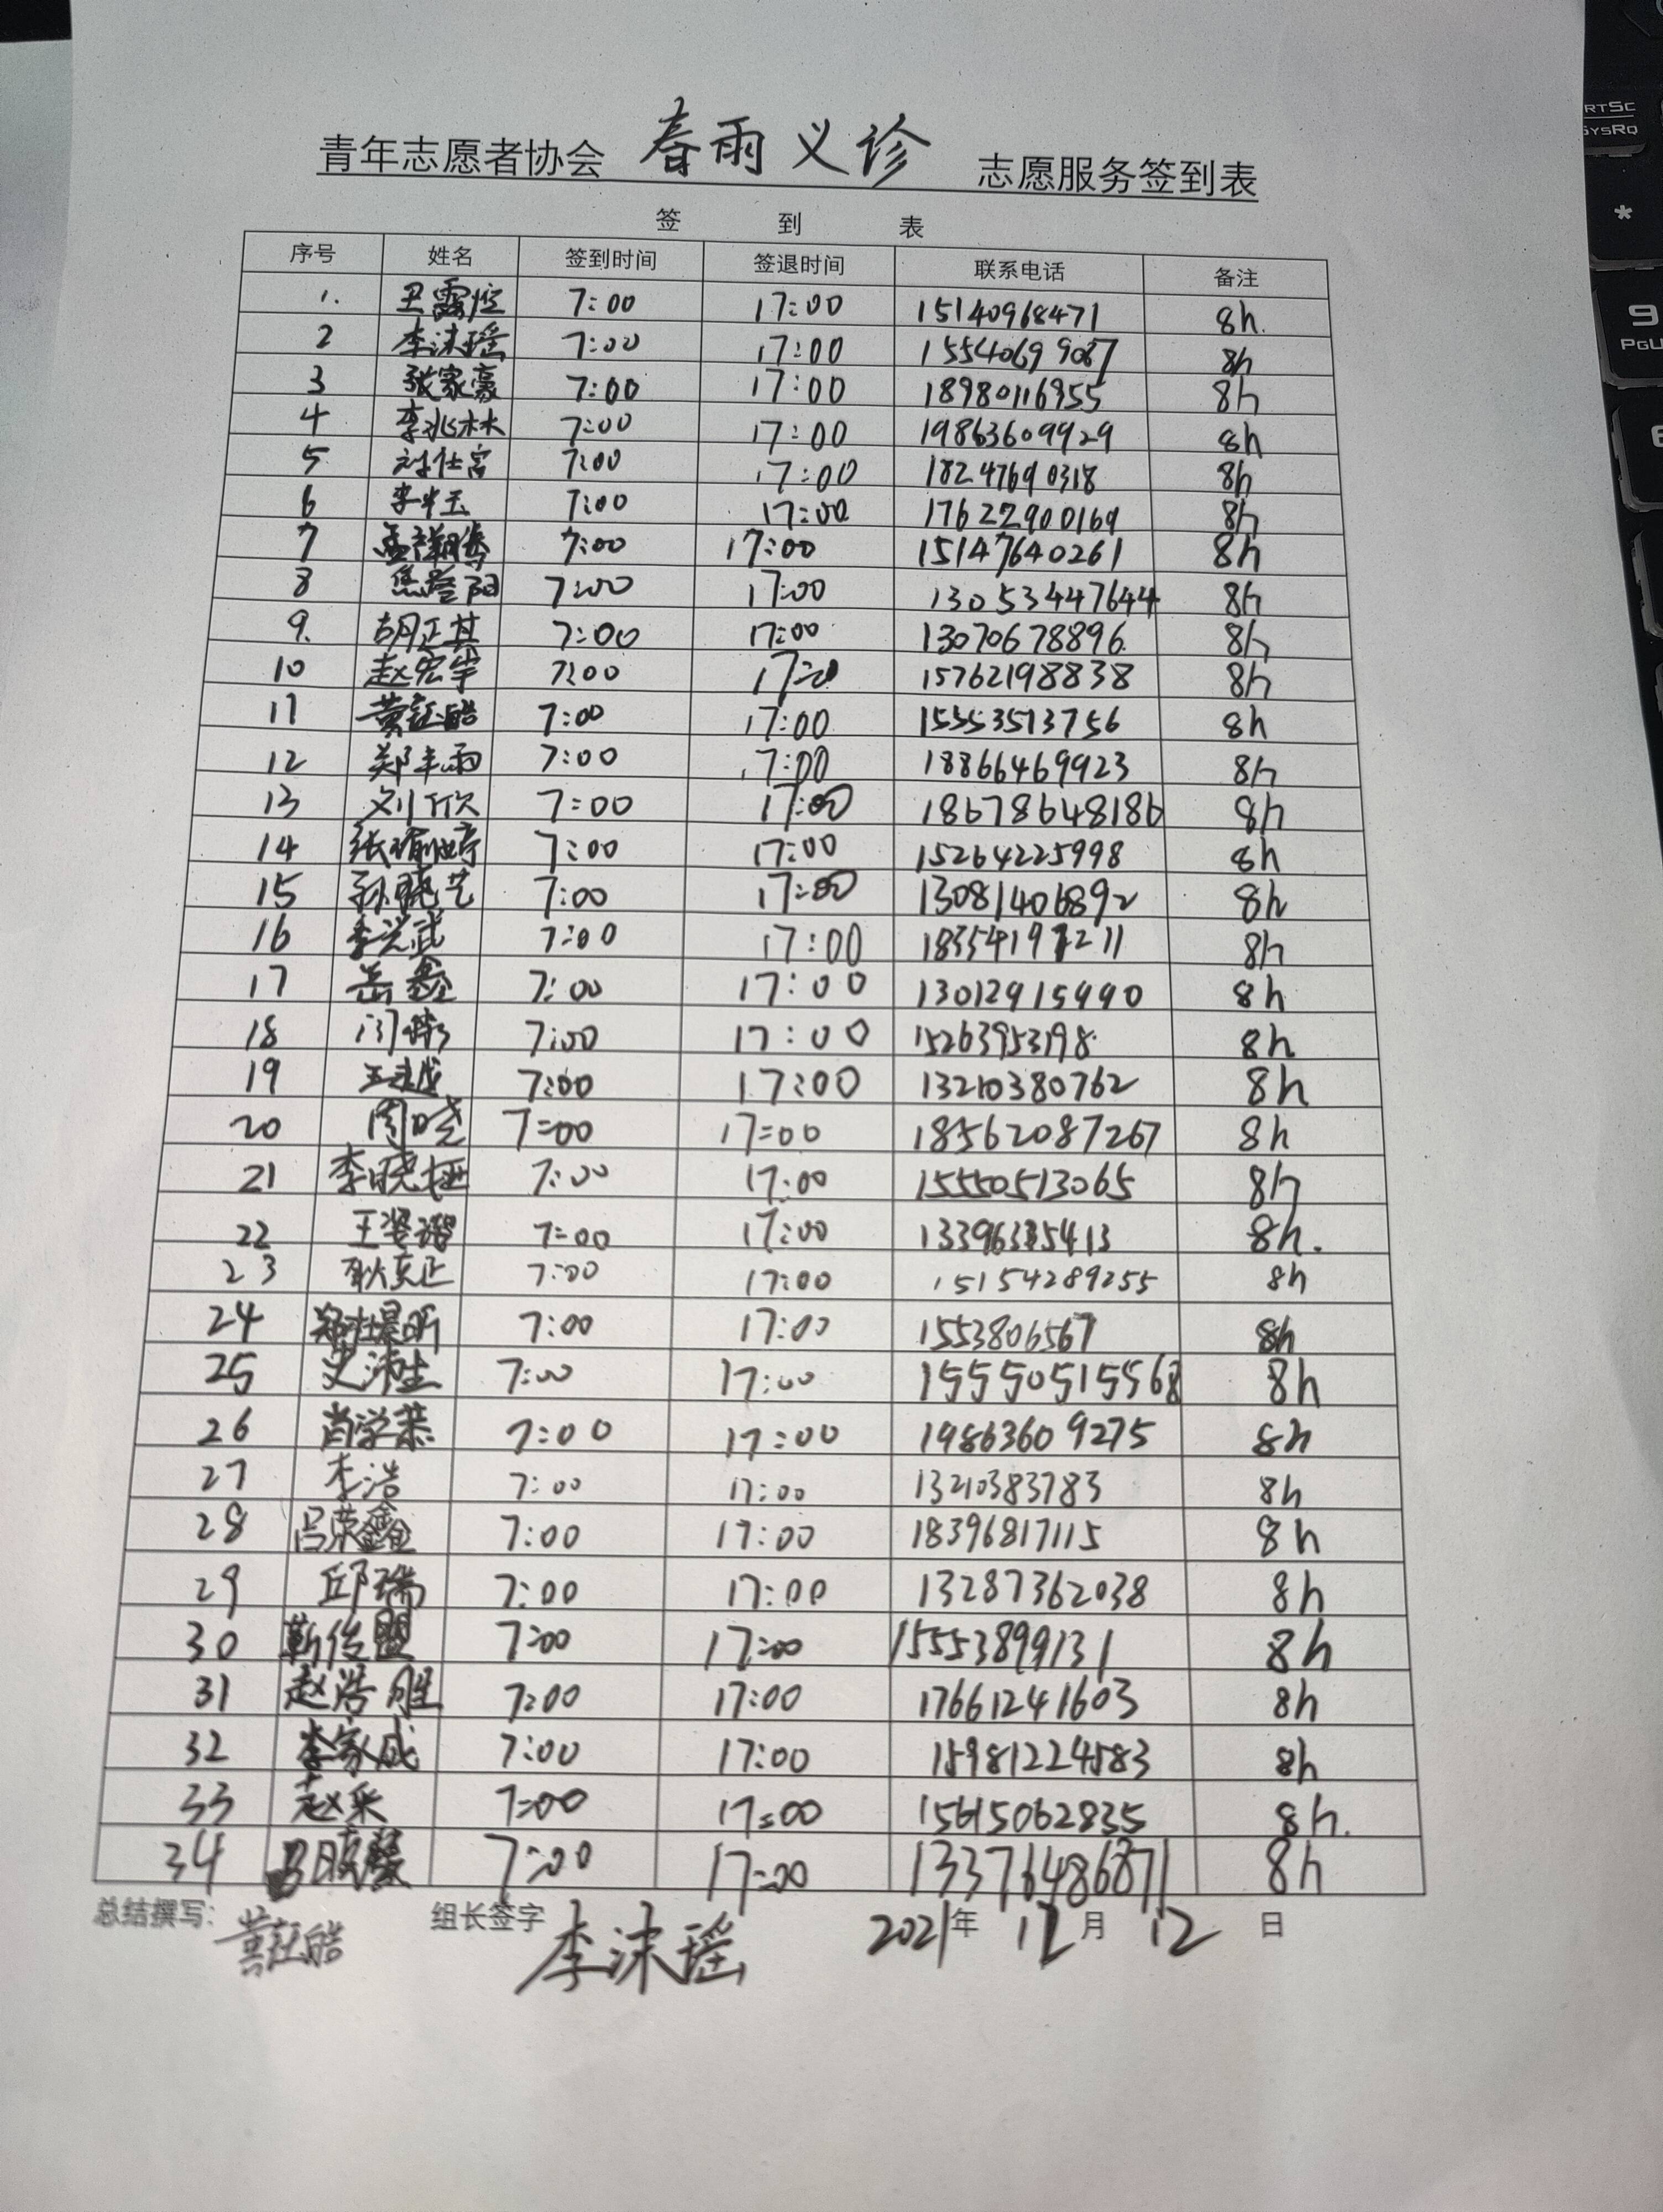 青年志愿者协会 春雨义诊 志愿服务签到表
签 到 表
序号 姓名 签到时间 签退时间 联系电话 备注
1. 7:00 17:00 15140968471 8h.
2 李沫瑶 7:00 17:00 15540699087 8h
3 张家豪 7:00 17:00 18980116955 8h
4 李兆林 7:00 17:00 19863609929 8h
5 刘仕富 7:00 17:00 18247690318 8h
6 7:00 17:00 17622900169 8h
7 孟翔隽 7:00 17:00 15147640261 8h
8 7:00 17:00 13053447644 8h
9. 胡正其 7:00 17:00 13070678896. 8h
10 赵宏宇 7:00 17:00 15762198838 8h
11 黄钰皓 7:00 17:00 15553513756 8h
12 郑丰雨 7:00 17:00 18866469923 8h
13 刘欣 7:00 17:00 18678648186 8h
14 张瑜婷 7:00 17:00 15264225998 8h
15 孙晓艺 7:00 17:00 13081406892 8h
16 李兴武 7:00 17:00 8h
17 岳鑫 7:00 17:00 13012915990 8h
18 7:00 17:00 15263953198. 8h
19 王越 7:00 17:00 13210380762 8h
20 周晓 7:00 17:00 18562087267 8h
21 李晓娅 7:00 17:00 15550513065 8h
22 7:00 17:00 8h.
23 耿贞正 7:00 17:00 15154289255 8h
24 7:00 17:00 1553806567 8h
25 史沛生 7:00 17:00 155505155568 8h
26 肖学恭 7:00 17:00 19863609275 8h
27 李浩 7:00 17:00 13210383783 8h
28 吕荣鑫 7:00 17:00 18396817115 8h
29 邱瑞 7:00 17:00 13287362038 8h
30 靳传盟 7:00 17:00 15553899131 8h
31 赵浩胜 7:00 17:00 17661241603 8h
32 李家成 7:00 17:00 15981224583 8h
33 赵采 7:00 17:00 15615062835 8h.
34 7:00 17:00 13376486871 8h
总结撰写: 黄钰皓 组长签字 李沫瑶 2021年 12月 12 日
RTSC
SYSRQ
*
9
PGU
6